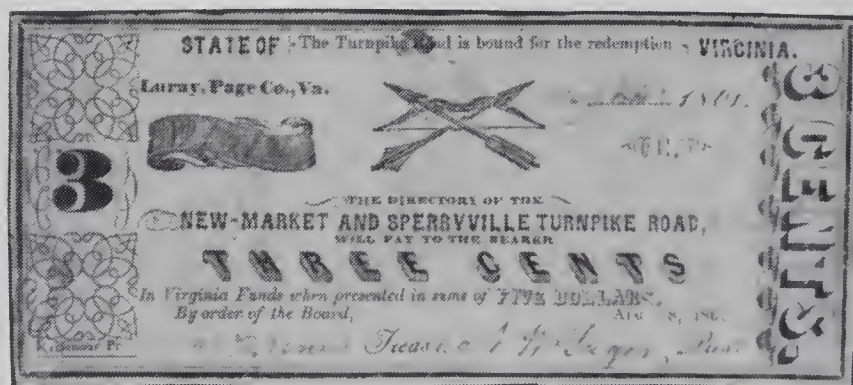 STATE OF The Turnpike Road is bound for the redemption VIRGINIA.
Luray, Page Co., Va.
3
THE DIRECTORY OF THE
NEW-MARKET AND SPERRYVILLE TURNPIKE ROAD,
WILL PAY TO THE BEARER
THREE CENTS
In Virginia Funds when presented in sums of FIVE DOLLARS.
By order of the Board,
Treas.
3 CENTS.